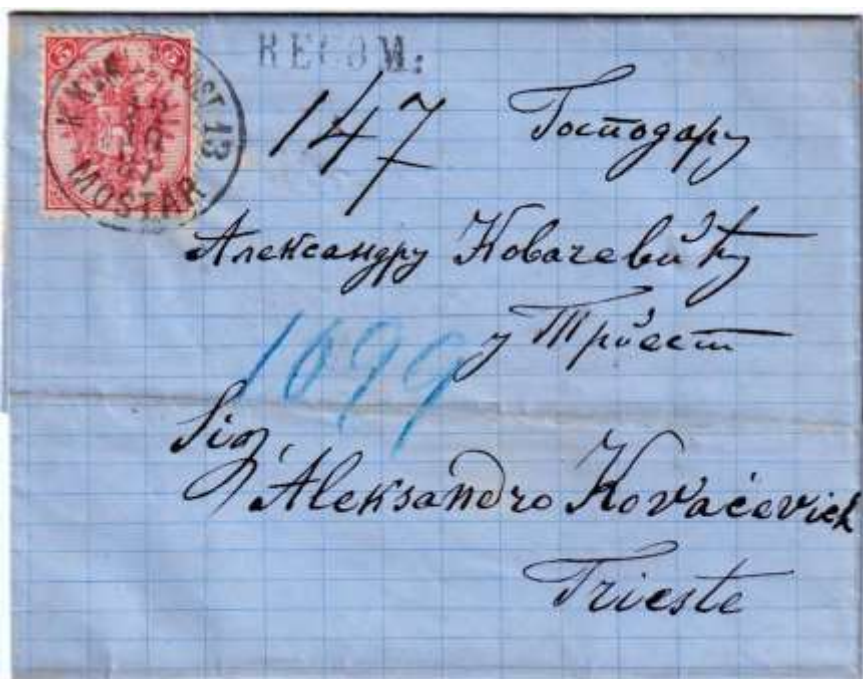 5 5
K.u.K. POST 13
MOSTAR
RECOM:
147 Господару
Александру Ковачевићу
у Трӥест
1699
Sig.
Aleksandro Kovaćevich
Trieste